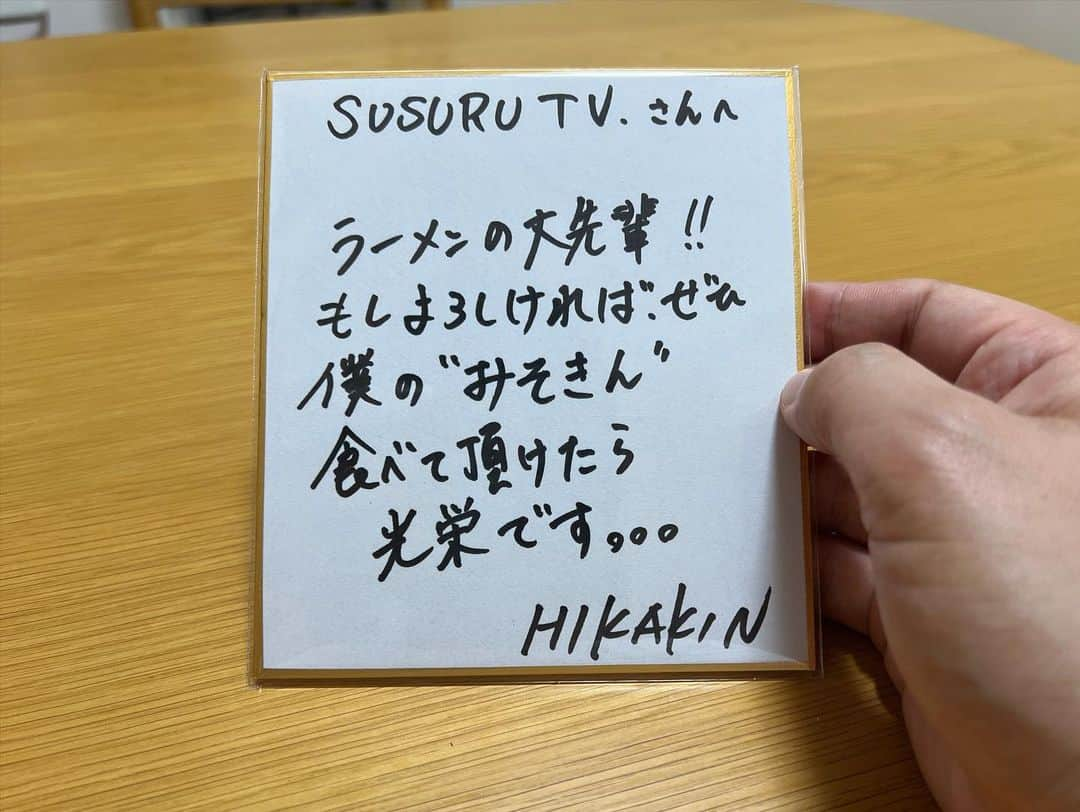 SUSURU TV. さんへ
ラーメンの大先輩!!
もしよろしければ、ぜひ
僕の"みそきん"
食べて頂けたら
光栄です。。。
HIKAKIN